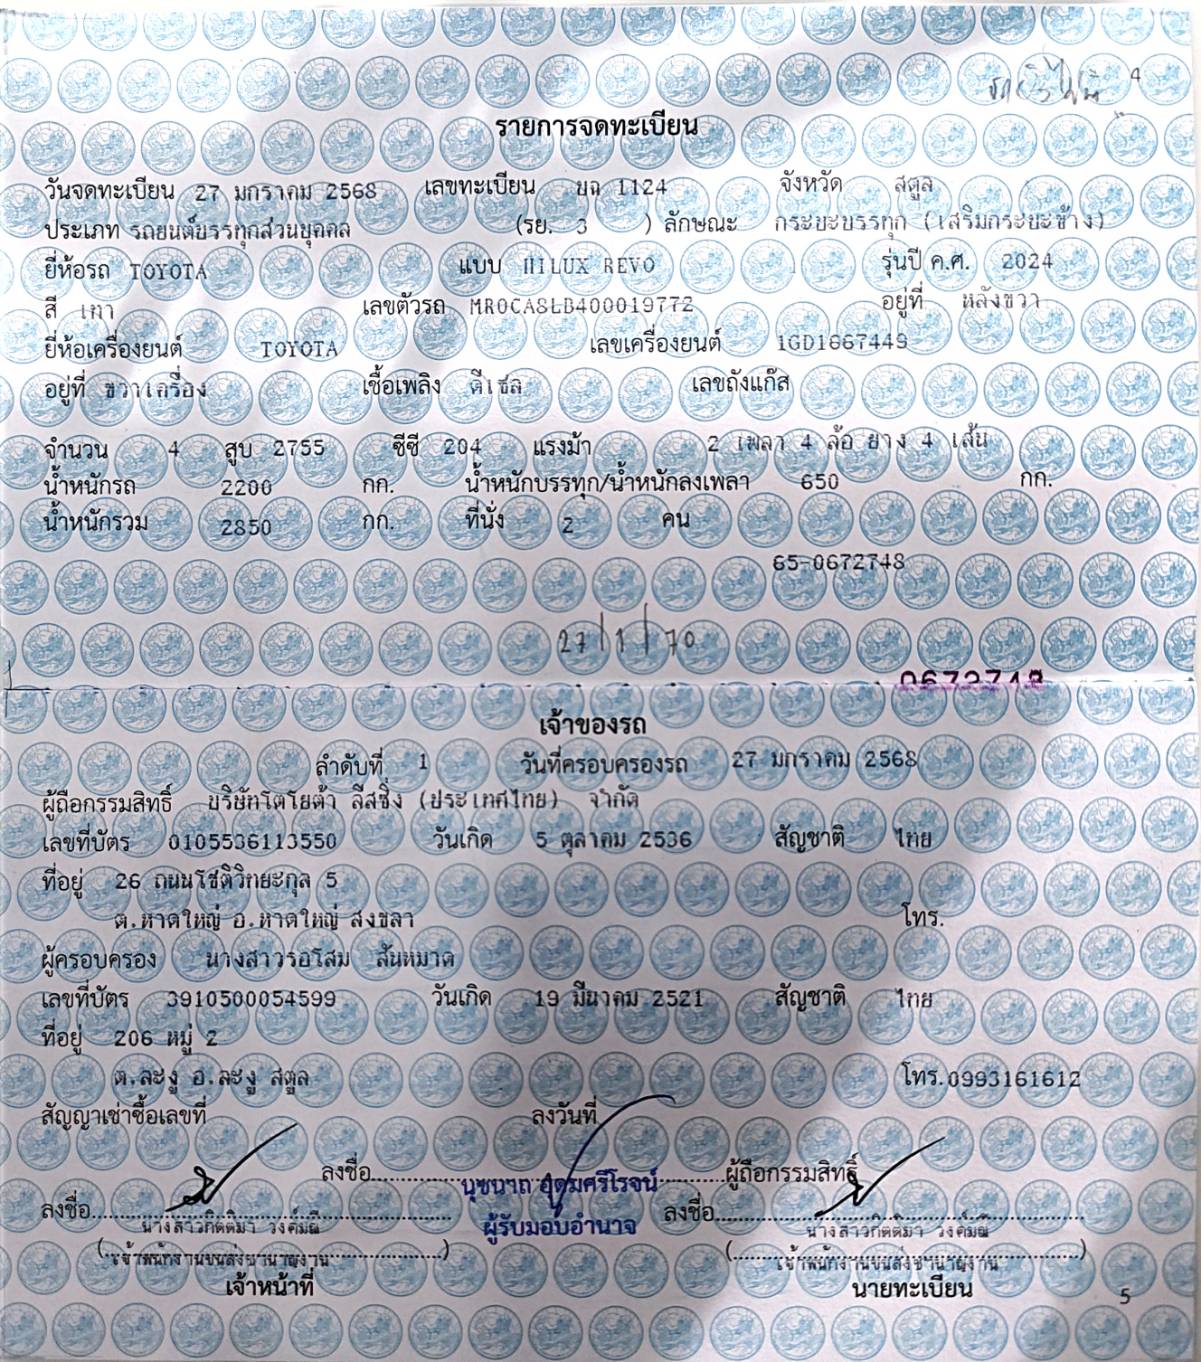 4
รายการจดทะเบียน
วันจดทะเบียน 27 มกราคม 2568 เลขทะเบียน ยฉ 1124 จังหวัด สตูล
ประเภท รถยนต์บรรทุกส่วนบุคคล (รย. 3 ) ลักษณะ กระบะบรรทุก (เสริมกระบะข้าง)
ยี่ห้อรถ TOYOTA แบบ HILUX REVO รุ่นปี ค.ศ. 2024
สี เทา เลขตัวรถ MR0CA8LB400019772 อยู่ที่ หลังขวา
ยี่ห้อเครื่องยนต์ TOYOTA เลขเครื่องยนต์ 1GD1667449
อยู่ที่ ขวาเครื่อง เชื้อเพลิง ดีเซล เลขถังแก๊ส
จำนวน 4 สูบ 2755 ซีซี 204 แรงม้า 2 เพลา 4 ล้อ ยาง 4 เส้น
น้ำหนักรถ 2200 กก. น้ำหนักบรรทุก/น้ำหนักลงเพลา 650 กก.
น้ำหนักรวม 2850 กก. ที่นั่ง 2 คน
65-0672748
27/1/70
0672748
เจ้าของรถ
ลำดับที่ 1 วันที่ครอบครองรถ 27 มกราคม 2568
ผู้ถือกรรมสิทธิ์ บริษัทโตโยต้า ลีสซิ่ง (ประเทศไทย) จำกัด
เลขที่บัตร 0105536113550 วันเกิด 5 ตุลาคม 2536 สัญชาติ ไทย
ที่อยู่ 26 ถนนโชติวิทยะกุล 5
ต.หาดใหญ่ อ.หาดใหญ่ สงขลา โทร.
ผู้ครอบครอง นางสาวรอโสม สันหมาด
เลขที่บัตร 3910500054599 วันเกิด 19 มีนาคม 2521 สัญชาติ ไทย
ที่อยู่ 206 หมู่ 2
ต.ละงู อ.ละงู สตูล โทร.0993161612
สัญญาเช่าซื้อเลขที่ ลงวันที่
ลงชื่อ............ผู้ถือกรรมสิทธิ์
นุชนาถ อุดมศรีโรจน์
ผู้รับมอบอำนาจ
ลงชื่อ............ ลงชื่อ............
นางสาวกิตติมา วงศ์มณี นางสาวกิตติมา วงศ์มณี
(เจ้าพนักงานขนส่งชำนาญงาน) (เจ้าพนักงานขนส่งชำนาญงาน)
เจ้าหน้าที่ นายทะเบียน
5